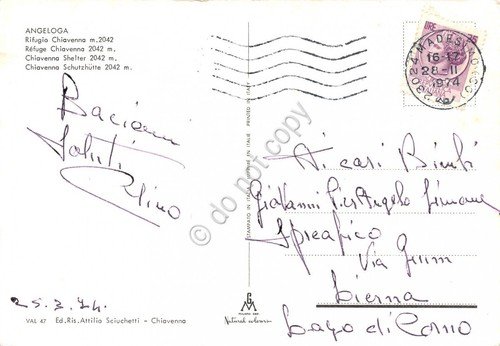 ANGELOGA
Rifugio Chiavenna m.2042
Réfuge Chiavenna 2042 m.
Chiavenna Shelter 2042 m.
Chiavenna Schutzhütte 2042 m.
LIRE 25
MADESIMO
16-17
28-II
1974
Bacioni
Saluti
Ai cari Bimbi
Giovanni PierAngelo Simone
Spreafico
Via
Lierna
Lago di Como
25.2.74.
VAL 47 Ed.Ris.Attilio Sciuchetti - Chiavenna
STAMPATO IN ITALIA - PRINTED IN ITALY
GM
Natural colours
© do not copy